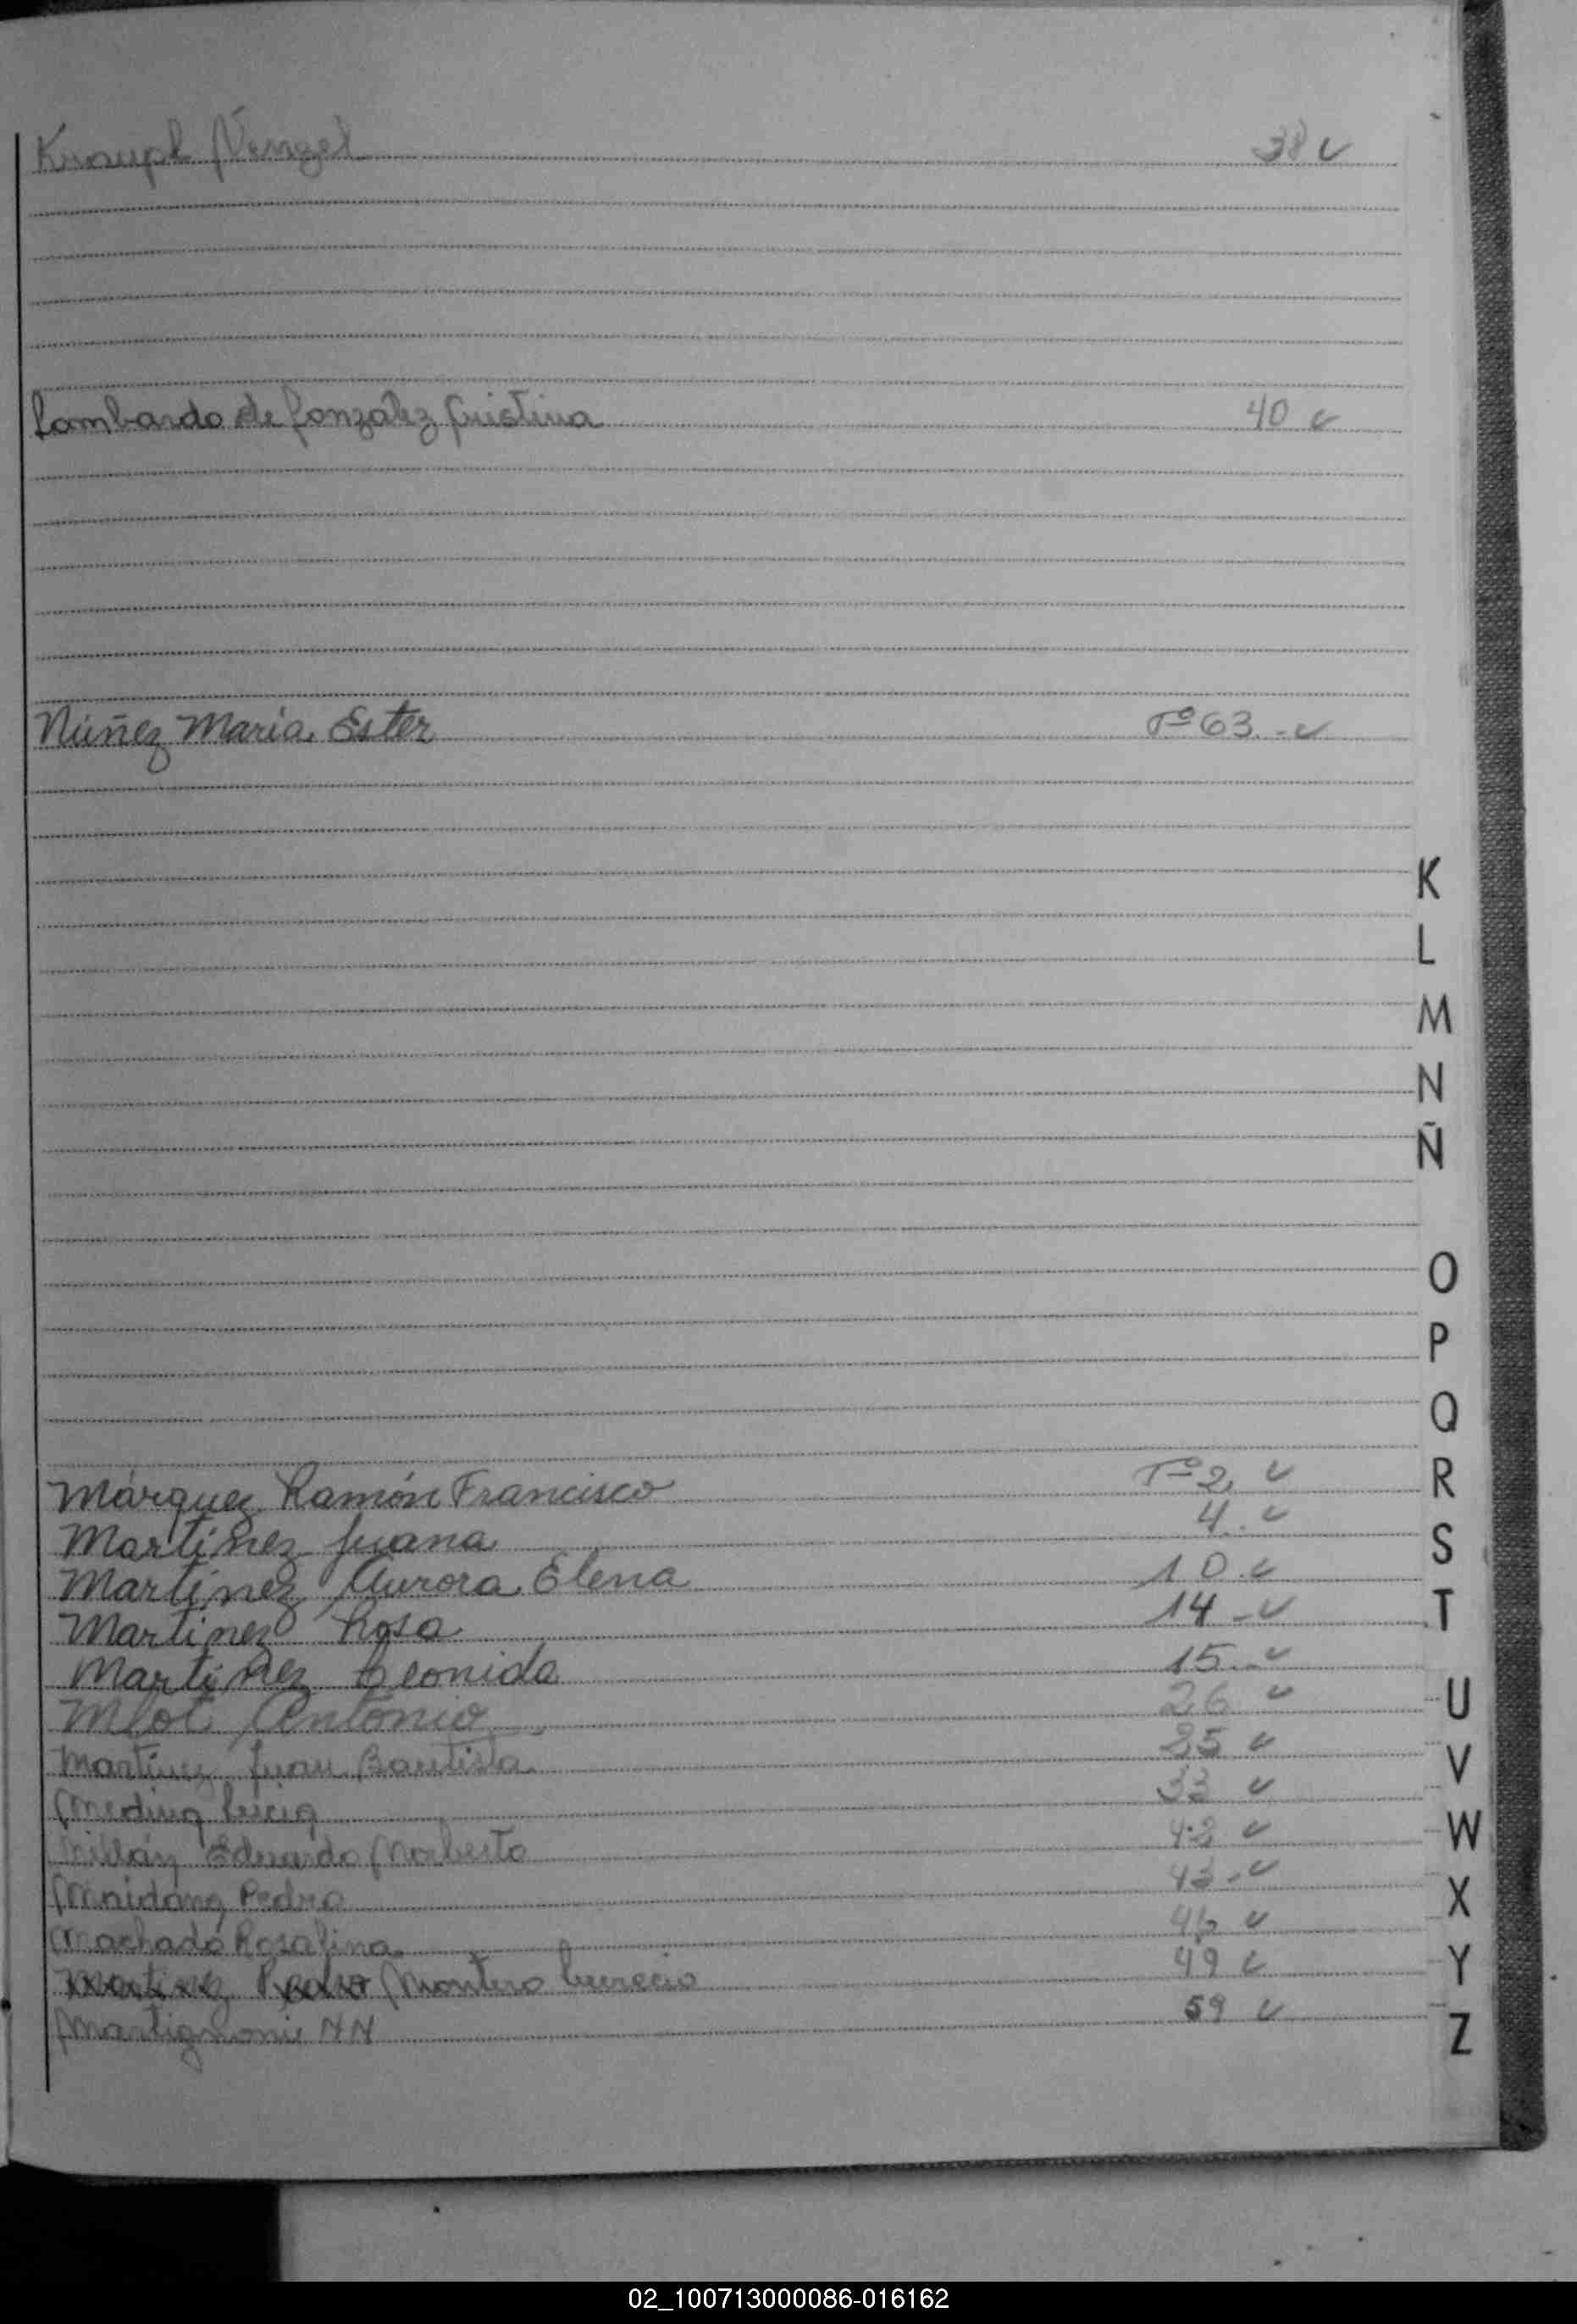 38 ✓
Lombardo de Gonzalez Cristina 40 ✓
Núñez Maria Ester Fº 63.- ✓
K
L
M
N
Ñ
O
P
Q
Márquez Ramón Francisco Fº 2. ✓
R
Martínez Juana 4. ✓
S
Martínez Aurora Elena 10. ✓
Martinez Rosa 14 - ✓
T
Martínez Leonida 15.- ✓
Mlot Antonio 26 ✓
U
Martínez Juan Bautista 35 ✓
V
Medina Lucia 33 ✓
Millán Eduardo Norberto 42 ✓
W
Maidana Pedro 43 - ✓
X
Machado Rosalina 46 ✓
Montero 49 ✓
Y
Martignoni NN 59 ✓
Z
02_100713000086-016162